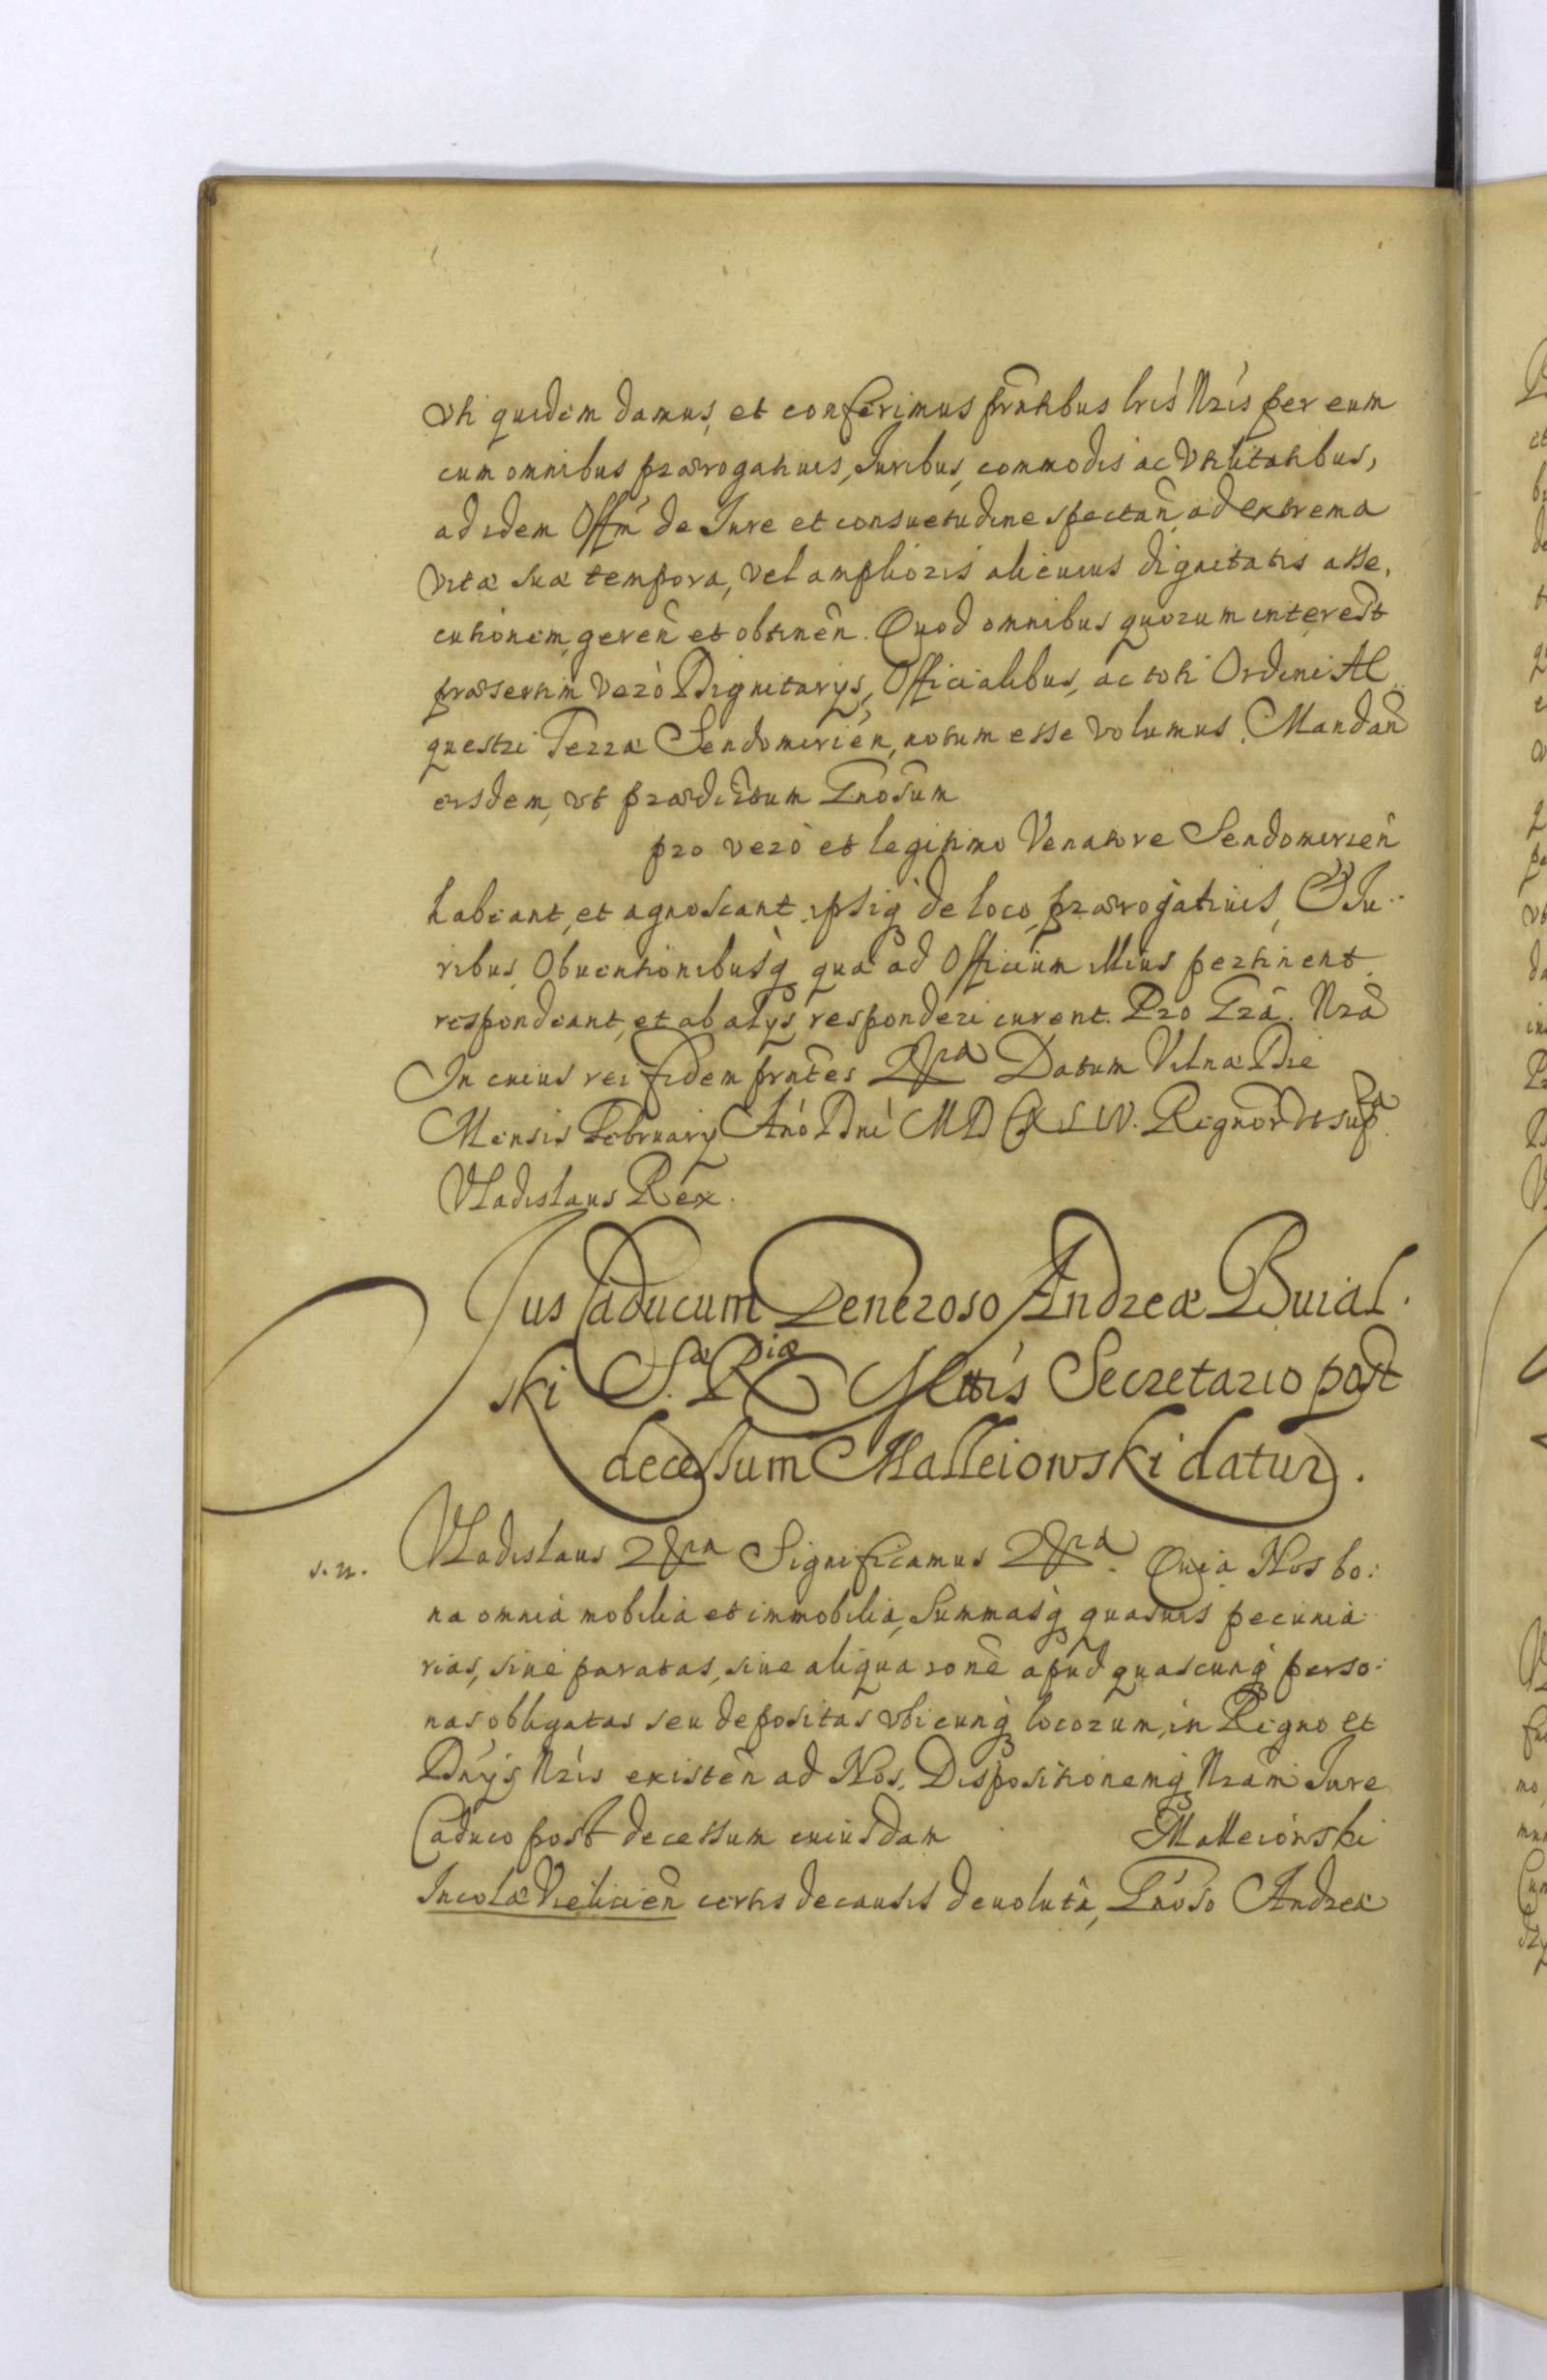 Vti quidem damus, et conferimus prñtibus lris Nris per eum
cum omnibus prærogatiuis, Iuribus, commodis ac Vtilitatibus,
ad idem Offm̃ de Iure et consuetudine spectañ, ad extrema
Vitæ suæ tempora, vel amplioris alicuius dignitatis asse,
cutionem, gereñ et obtineñ. Quod omnibus quorum interest
præsertim verò Dignitarijs, Officialibus, ac toti Ordini Æ
questri Terræ Sendomirień, notum esse volumus. Mandañ
eisdem, vt prædictum Gnosum
pro verò et legitimo Venatore Sendomirień
habeant, et agnoscant, ipsiq de loco, prærogatiuis, Iu
ribus, Obuentionibusq quæ ad Officium illius pertinent
respondeant, et ab alijs responderi curent. Pro Gra. Nra
In cuius rei fidem prñtes Datum Vilnæ Die
Mensis February Año Dñi MDCXLIV. Regnor vt sup
Vladislaus Rex.
Ius Caducum Generoso Andreæ Buial.
ski S.æ R.iæ Mttis Secretario post
decessum Malleiowski datur.
s. n.
Vladislaus Significamus Quia Nos bo:
na omnia mobilia et immobilia, Summasq quasuis pecunia
rias, siue paratas, siue aliqua rone apud quascunq perso:
nas obligatas seu depositas vbicunq locorum, in Regno et
Dnijs Nris existeñ ad Nos, Dispositionemq Nram Iure
Caduco post decessum cuiusdam Malleiowski
Incolæ Vieliciẽn certis de causis deuoluta, Gnoso Andreæ